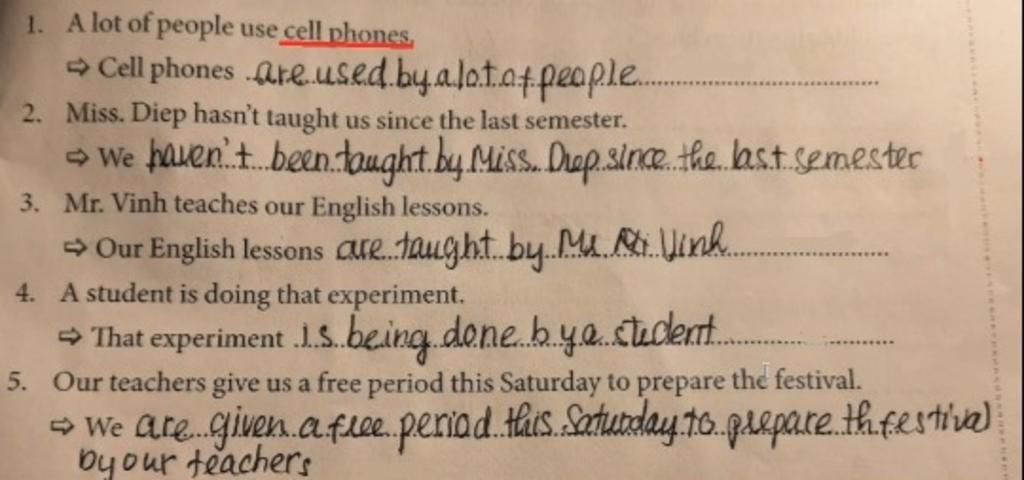 1. A lot of people use cell phones.
⇨ Cell phones are used by a lot of people
2. Miss. Diep hasn't taught us since the last semester.
⇨ We haven't been taught by Miss. Diep since the last semester
3. Mr. Vinh teaches our English lessons.
⇨ Our English lessons are taught by Vinh
4. A student is doing that experiment.
⇨ That experiment is being done by a student
5. Our teachers give us a free period this Saturday to prepare the festival.
⇨ We are given a free period this Saturday to prepare th festival
by our teachers